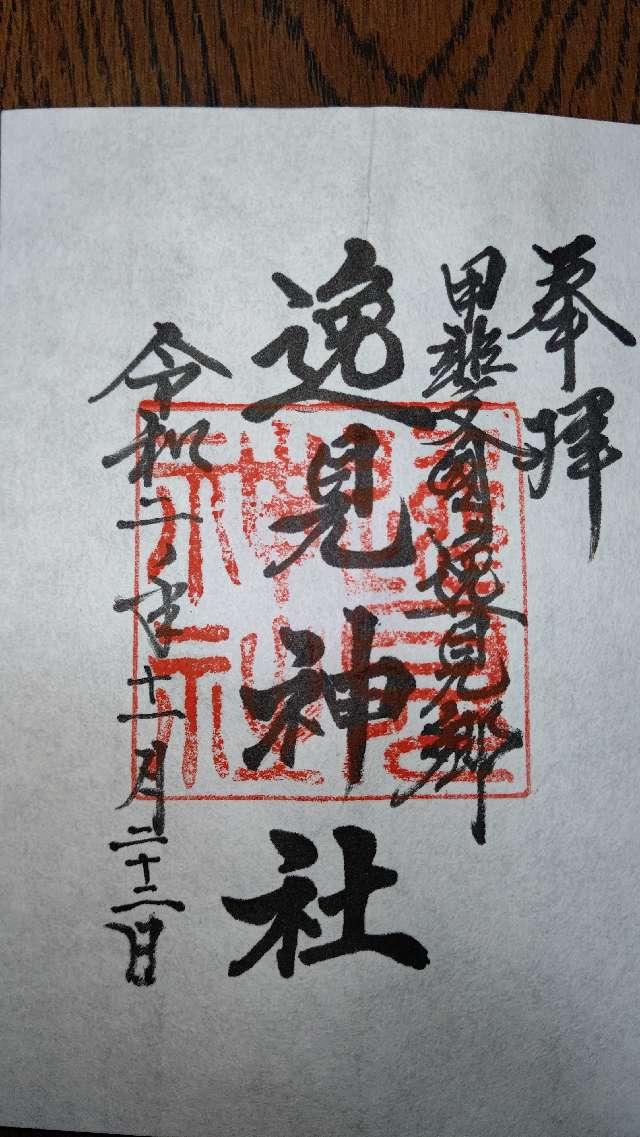 奉拝
甲斐之国逸見郷
逸見神社
令和二年十一月二十二日